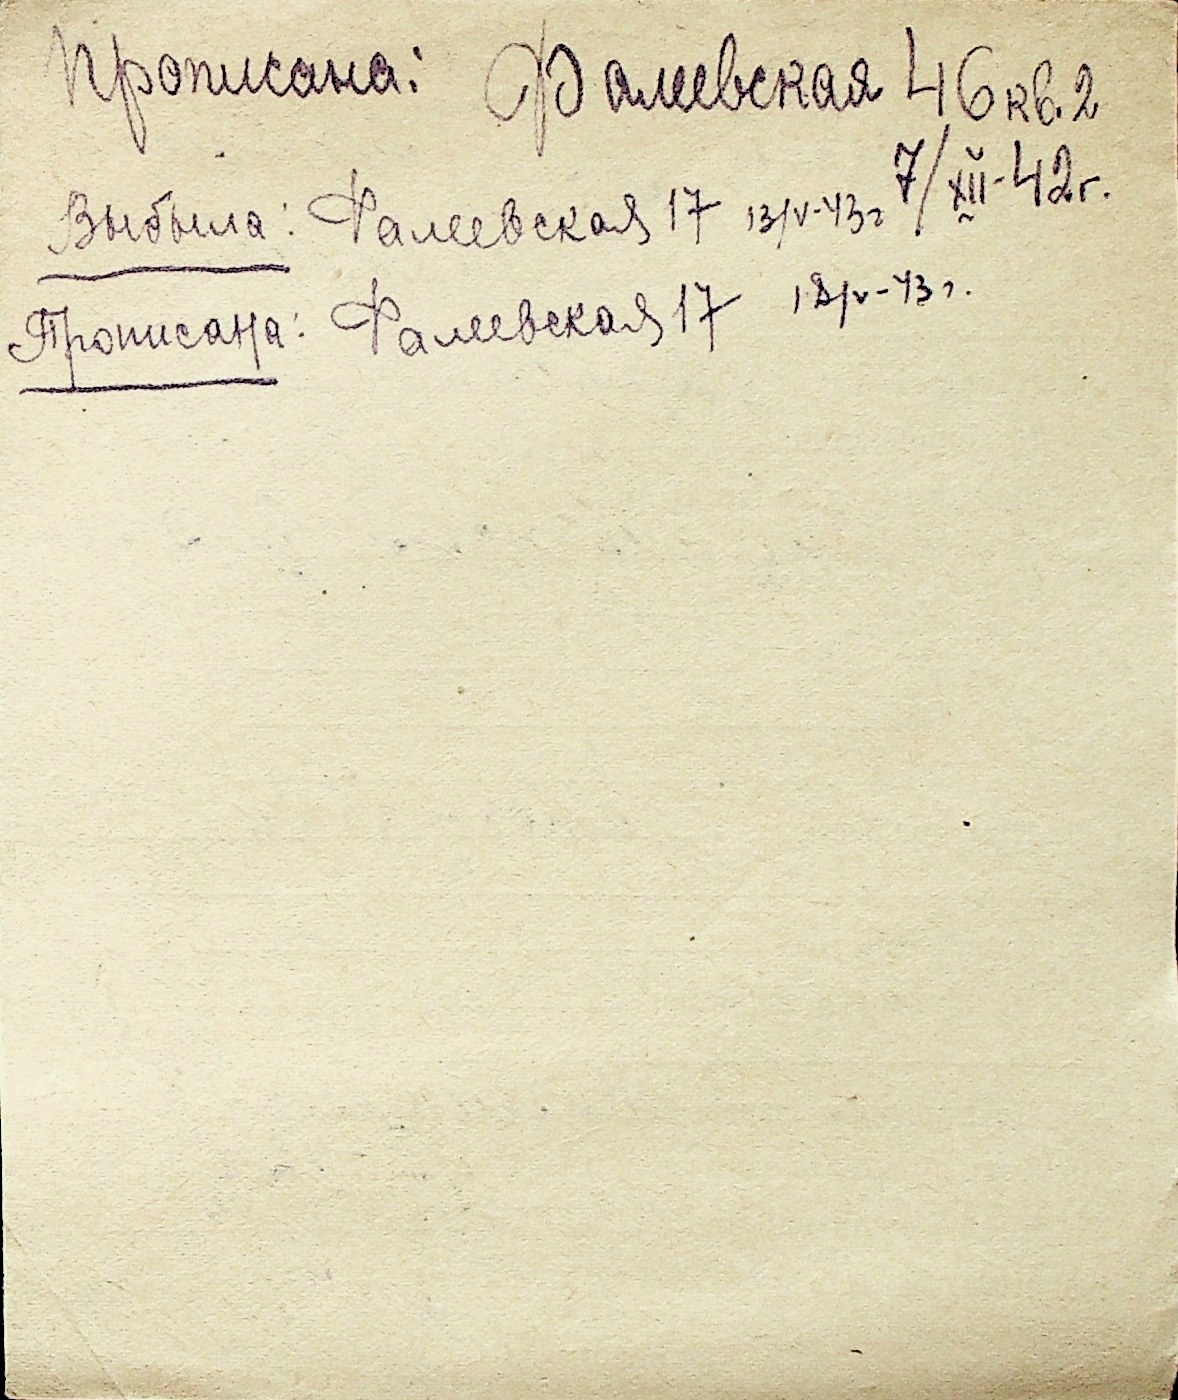 Прописана: Фалеевская 46 кв. 2
7/XII-42г.
Выбыла: Фалеевская 17 13/V-43г
Прописана: Фалеевская 17 18/V-43г.